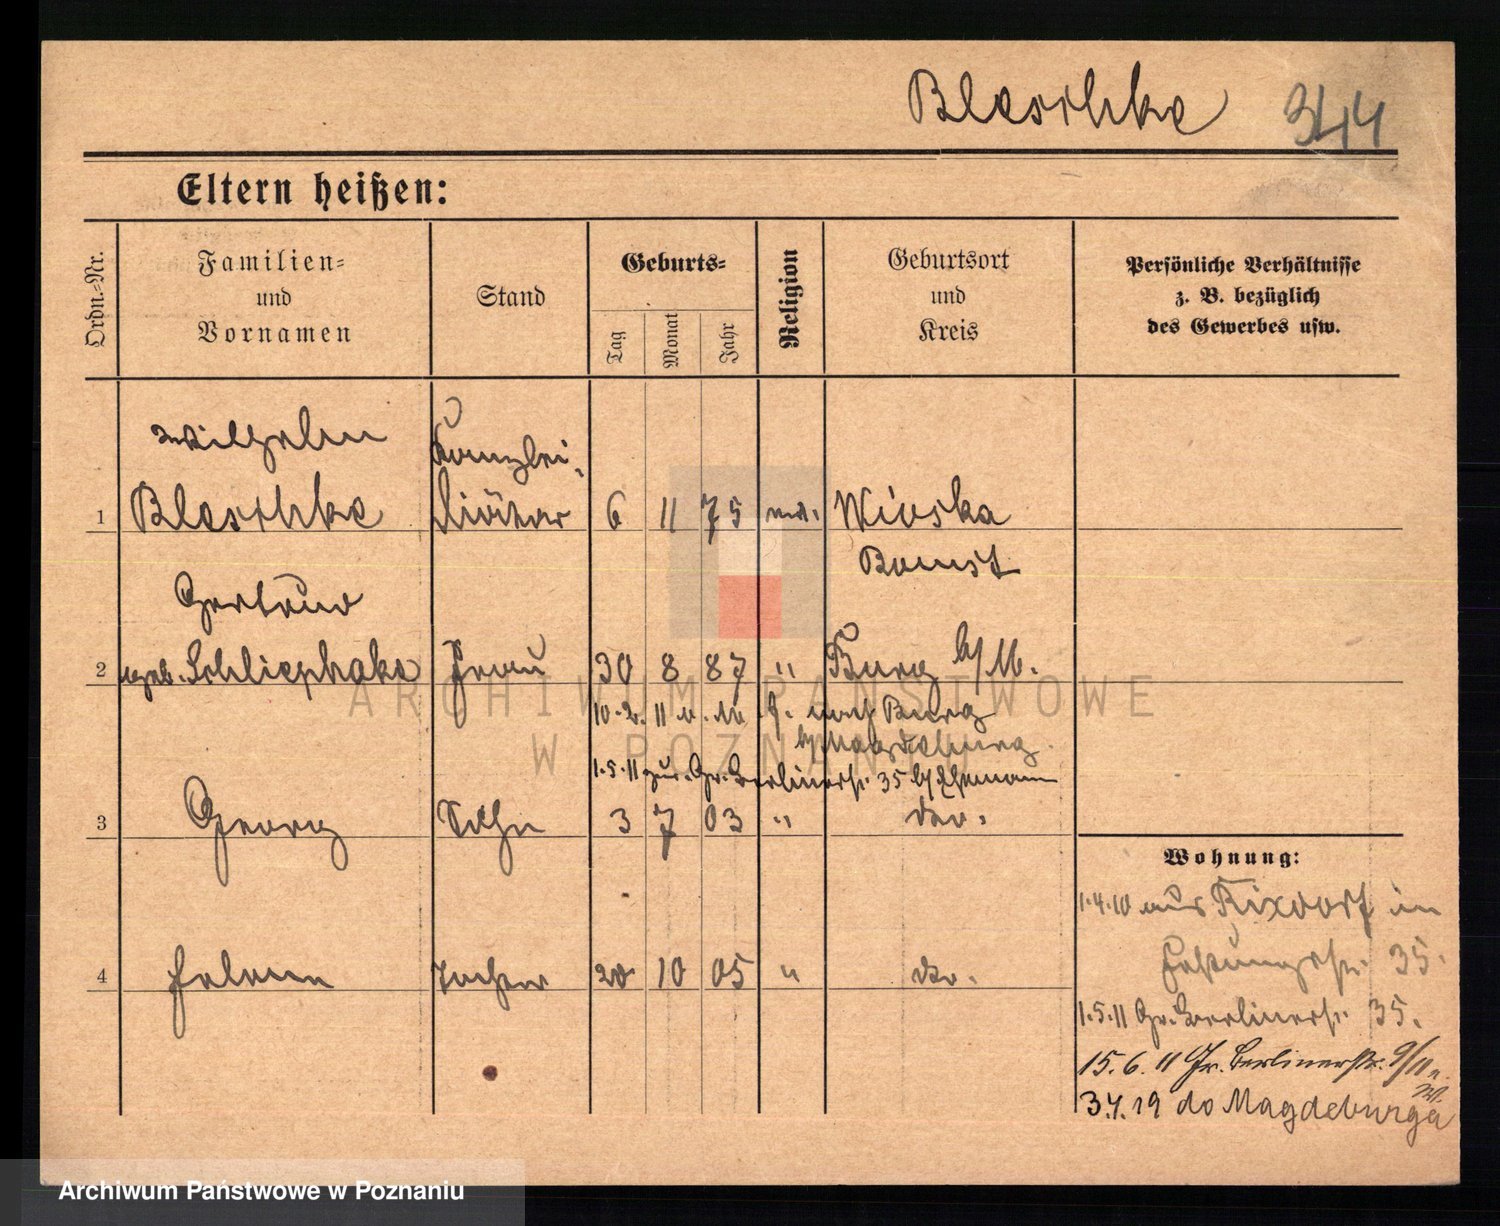 Blaschke 344
Eltern heißen:
Ordn.=Nr.
Familien=
und
Vornamen
Stand
Geburts=
Tag
Monat
Jahr
Religion
Geburtsort
und
Kreis
Persönliche Verhältnisse
z. B. bezüglich
des Gewerbes usw.
Wilhelm Kanzlei
1 Blaschke diätar 6 11 75 Wioska
Bomst
Gertrud
2 geb. Schliephake Frau 30 8 87 " Burg b/M.
10.2.11 nach Burg
b/Magdeburg.
1.5.11 zur. Gr. Berlinerstr. 35 b/Ehemann
3 Georg Sohn 3 7 03 " do.
4 Tochter 20 10 05 " do.
Wohnung:
1.4.10 aus Rixdorf in
Festungsstr. 35.
1.5.11 Gr. Berlinerstr. 35.
15.6.11 Gr. Berlinerstr. 9/11
3.4.19 do Magdeburga
ARCHIWUM PAŃSTWOWE
W POZNANIU
Archiwum Państwowe w Poznaniu